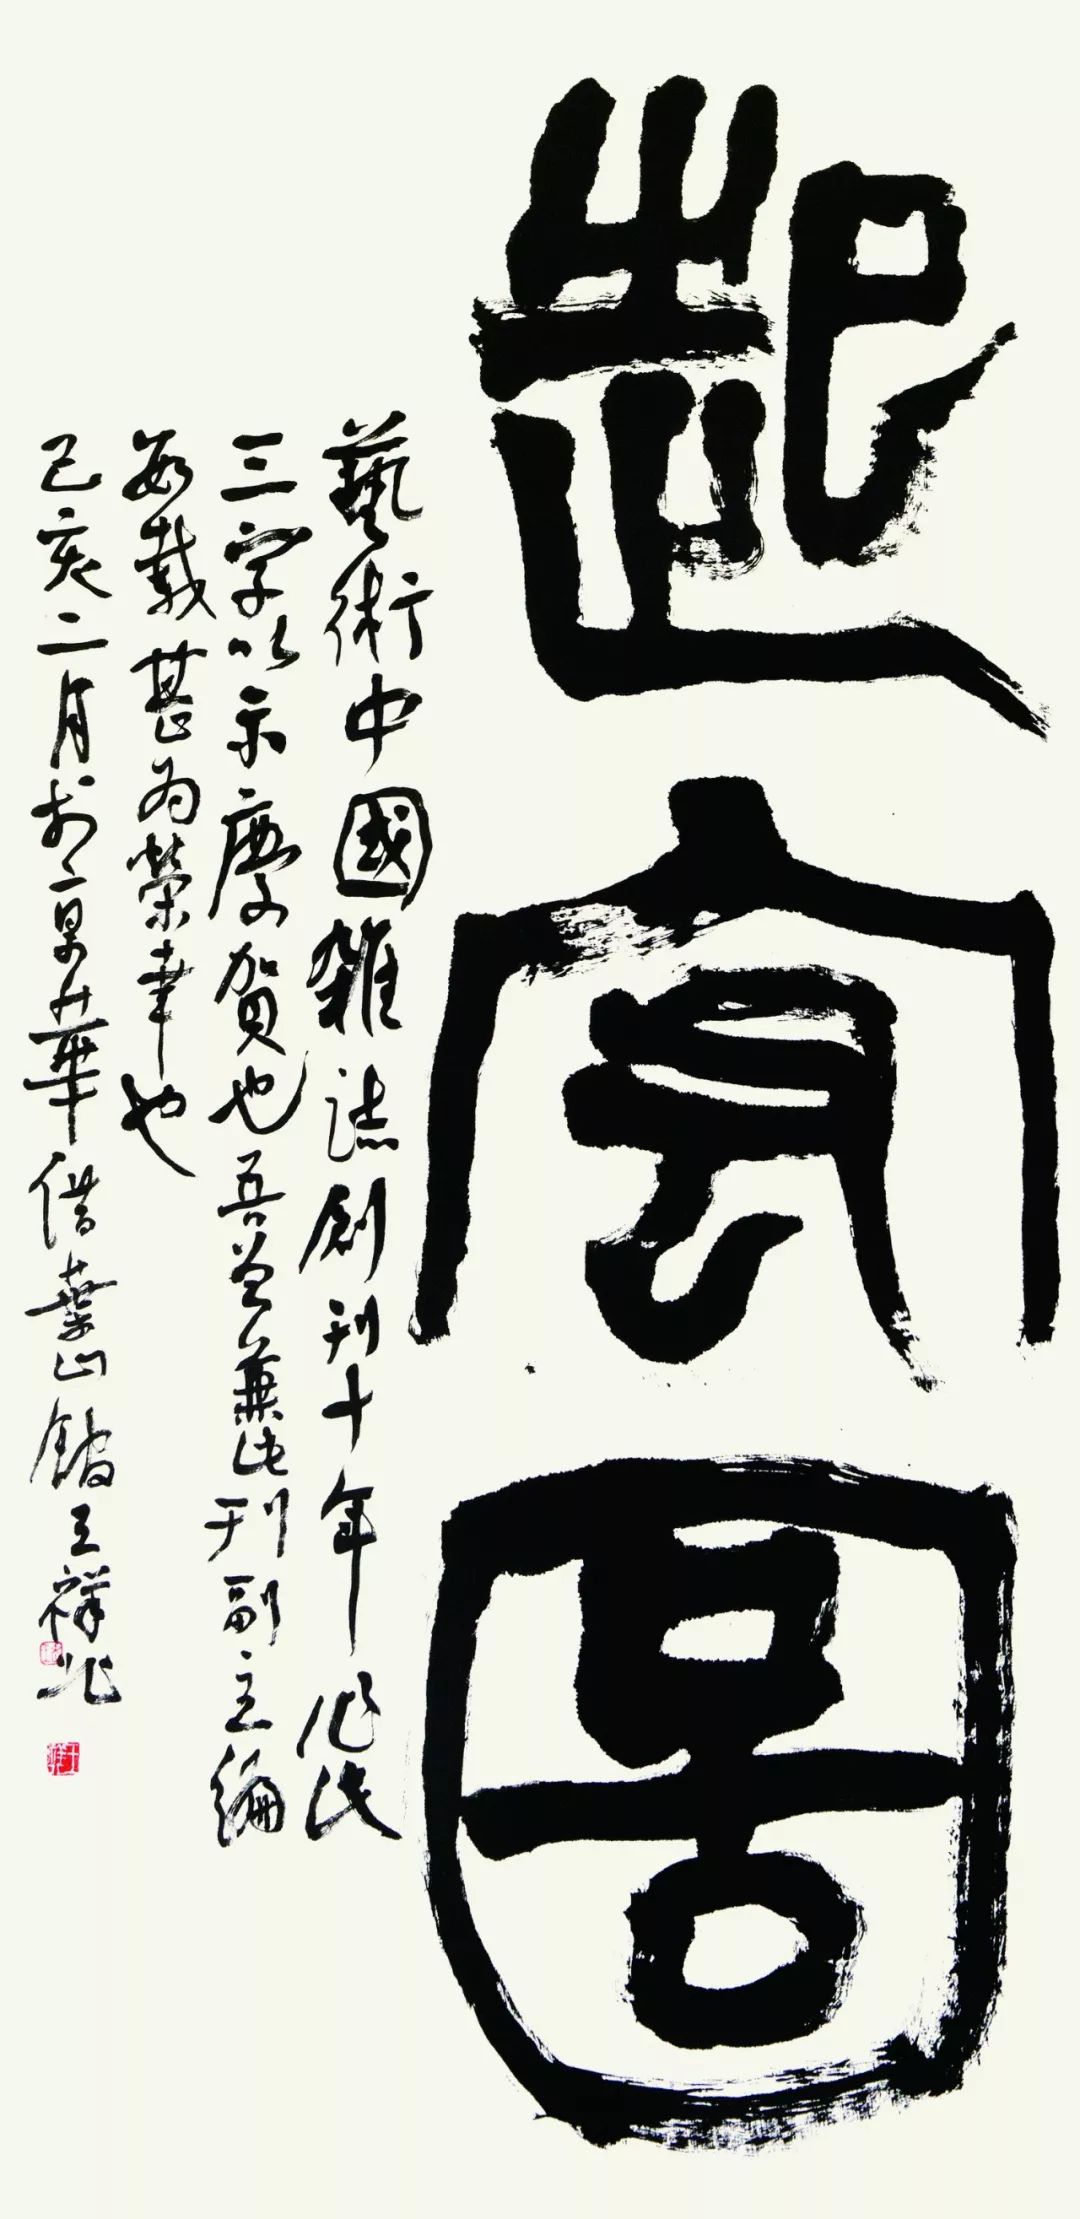 起宏圖
藝術中國雜誌創刊十年作此
三字以示慶賀也吾曾兼此刊副主編
數載甚為榮幸也
己亥二月於京華借葉山館王祥之